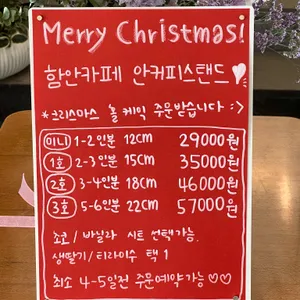 Merry Christmas!
함안카페 안커피스탠드♡
*크리스마스 홀케익 주문받습니다 :>
미니 1-2인분 12cm 29000원
1호 2-3인분 15cm 35000원
2호 3-4인분 18cm 46000원
3호 5-6인분 22cm 57000원
초코/바닐라 시트 선택가능.
생딸기/티라미수 택 1
최소 4-5일전 주문예약가능♡♡